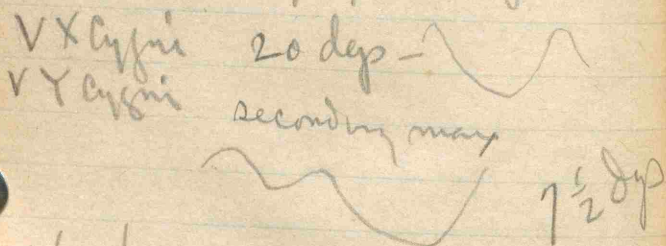 VX Cygni 20 dys -
VY Cygni
secondary max
7 1/2 dys